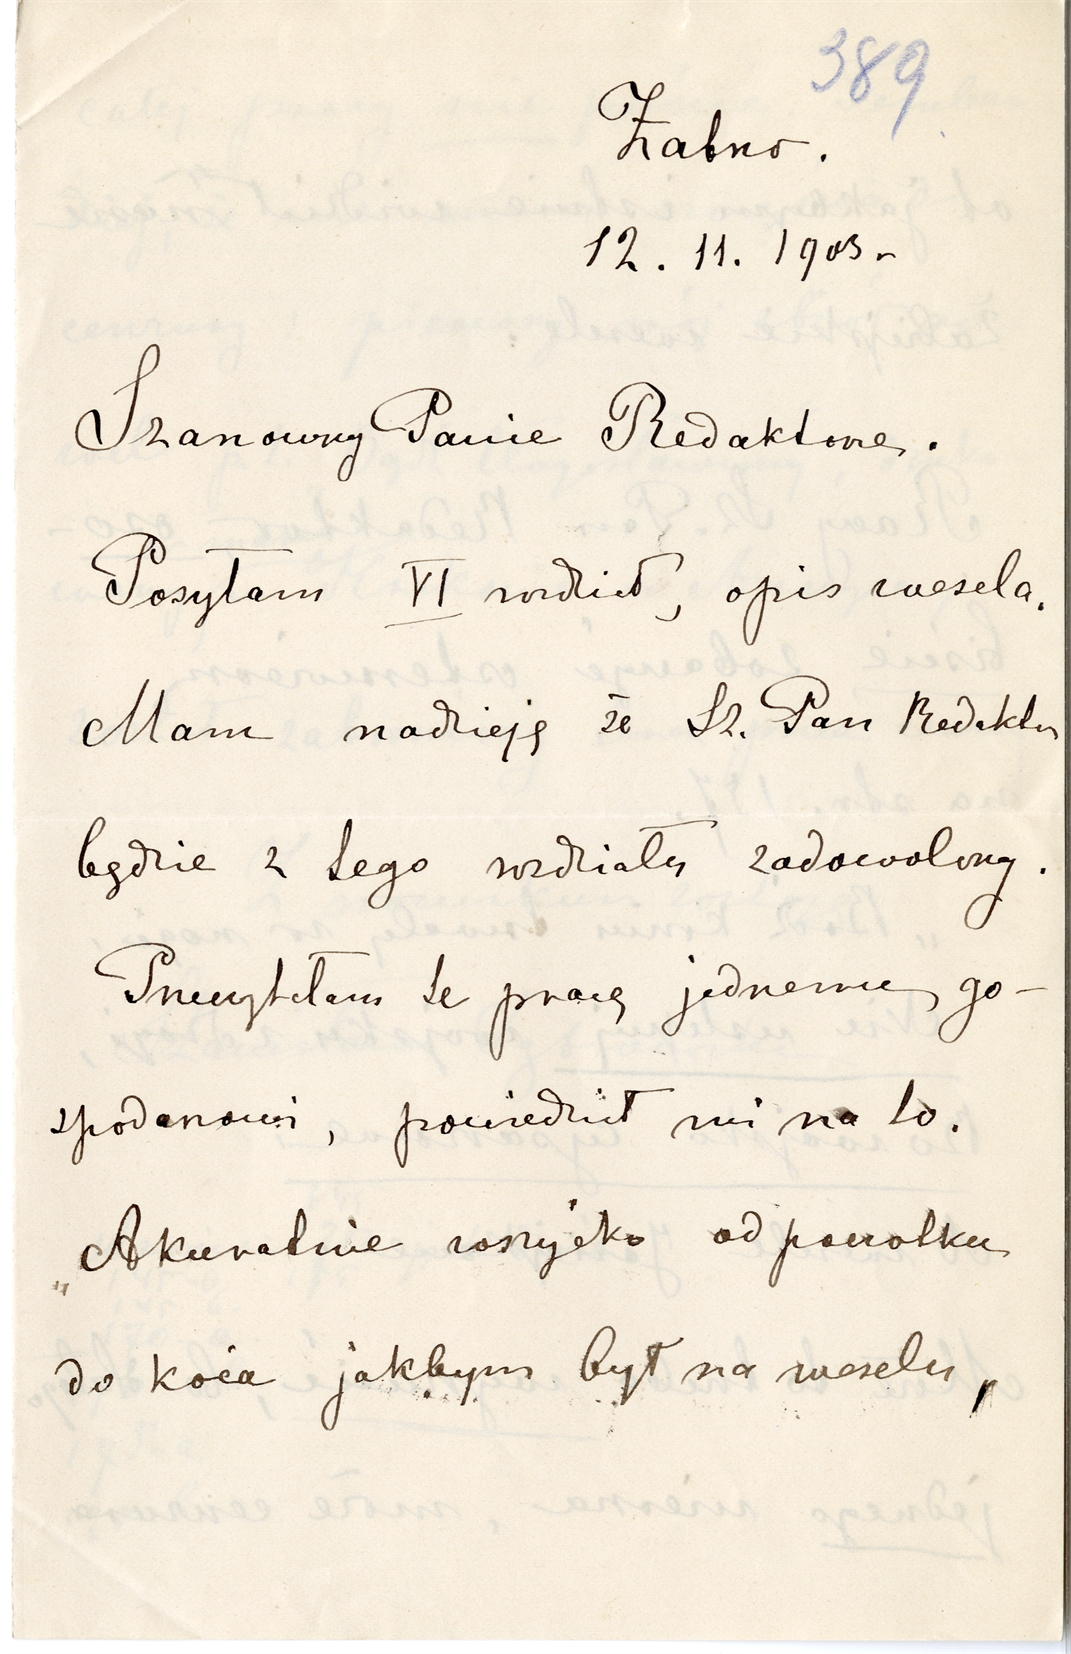 389
Żabno.
12. 11. 1903 r
Szanowny Panie Redaktorze.
Posyłam VI rozdział, opis wesela.
Mam nadzieję że Sz. Pan Redaktor
będzie z tego rozdziału zadowolony.
Przeczytałam te pracę jednemu go-
spodarzowi, powiedział mi na to.
„Akuratnie wszyćko od początku
do końca jakbym był na weselu,